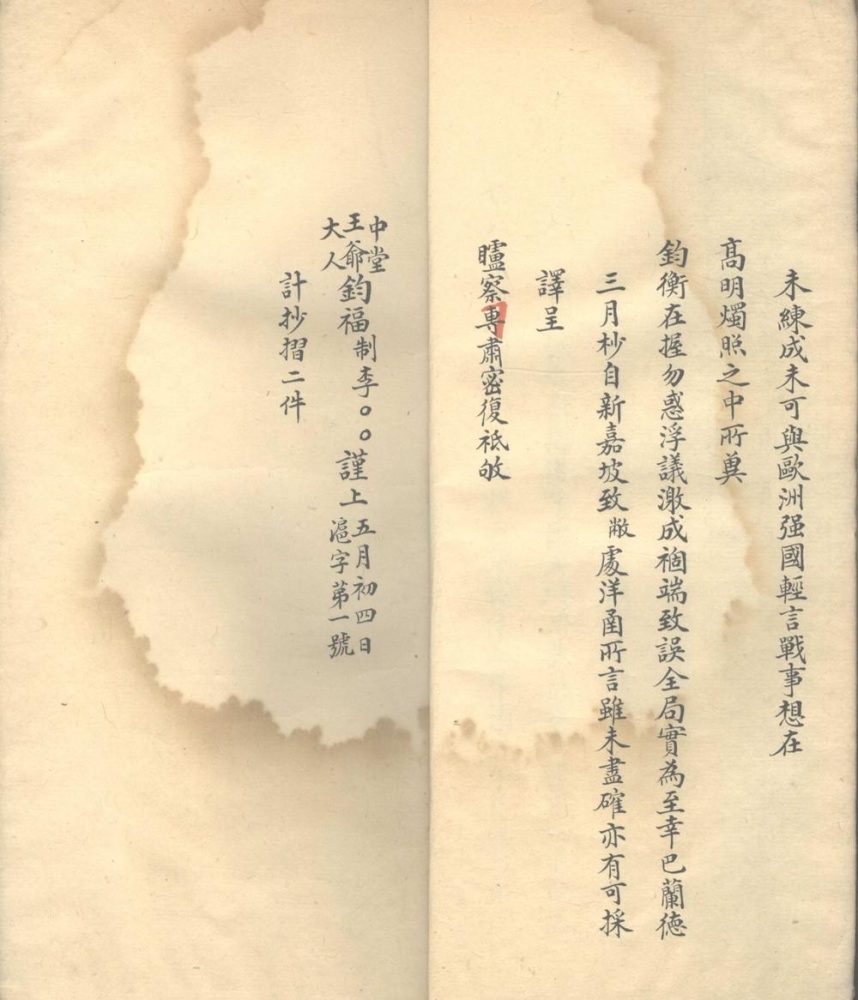 未練成未可與歐洲强國輕言戰事想在
高明燭照之中所冀
鈞衡在握勿惑浮議激成禍端致誤全局實為至幸巴蘭德
三月杪自新嘉坡致敝處洋圅所言雖未盡確亦有可採
譯呈
矑察專肅密復祗敂
中堂
王爺鈞福制李〇〇謹上五月初四日
大人
滬字第一號
計抄摺二件